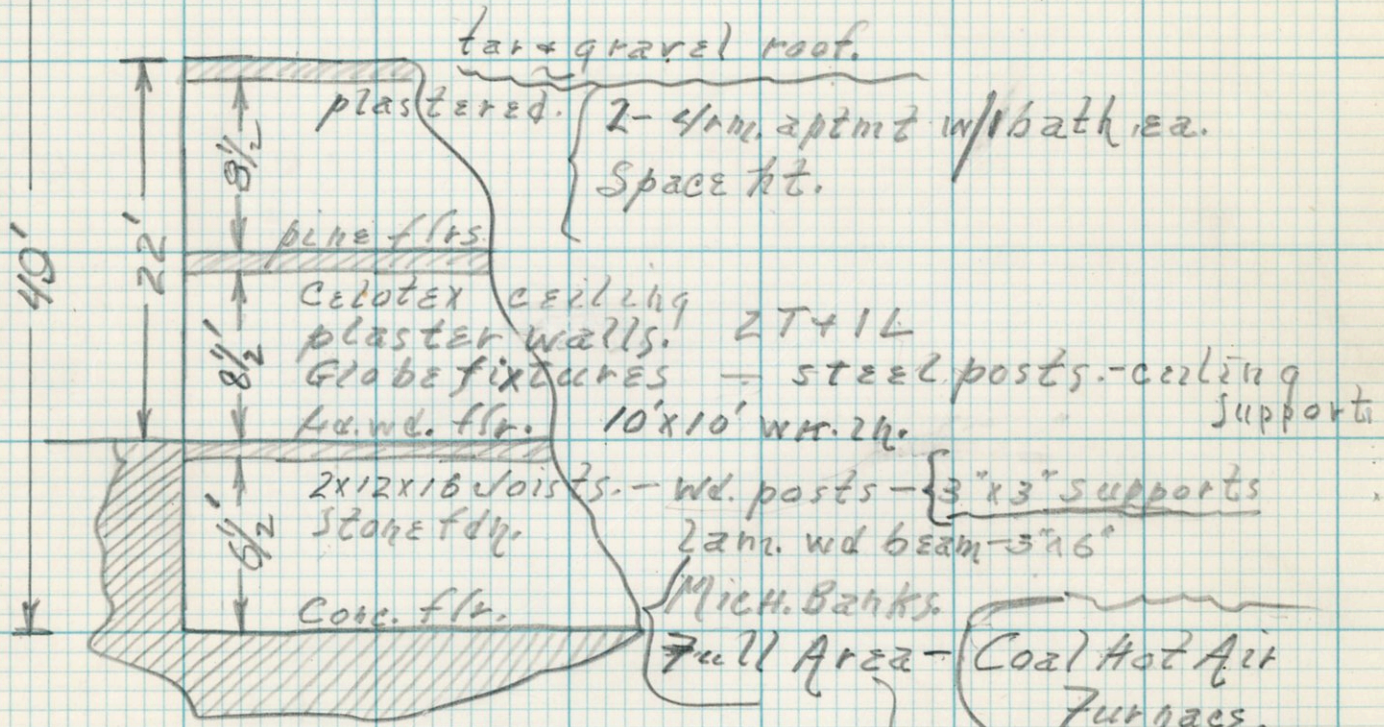 tar & gravel roof.
plastered.
2- 4/rm. aptmt w/1 bath ea.
Space ht.
8½'
pine flrs.
22'
40'
Celotex ceiling
plaster walls. 2T+1L
Globe fixtures - steel posts.-ceiling
supports
8½'
Hd. wd. flr. 10'x10' wk. in.
2x12x16 Joists. - wd. posts - 3"x3" supports
Stone fdn.
lam. wd beam-3"x6"
6½'
Mich. Banks.
Conc. flr.
Full Area - Coal Hot Air
Furnace.